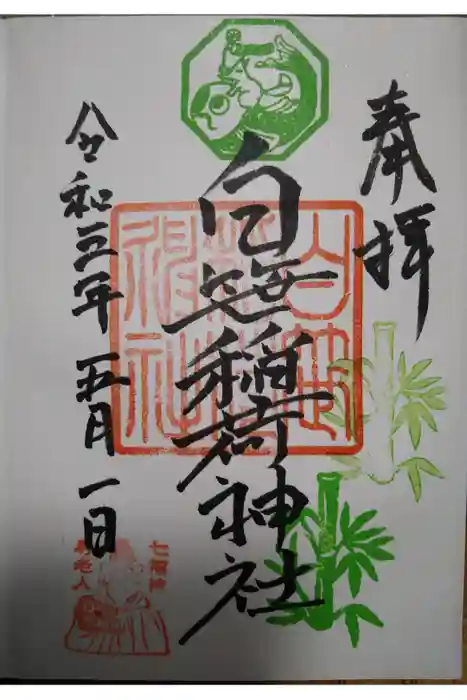 奉拝
白笹稲荷神社
令和三年五月一日
七福神
寿老人